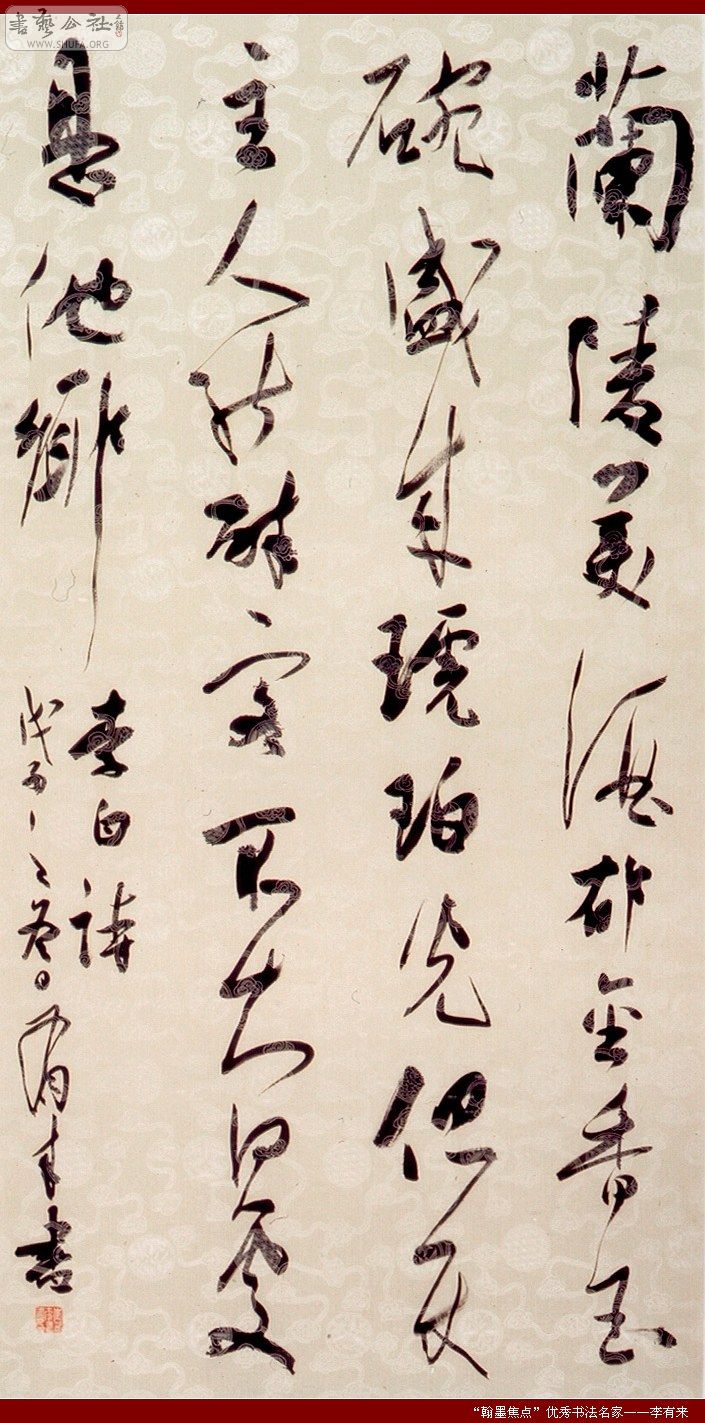 書藝公社
WWW.SHUFA.ORG
蘭陵美酒郁金香玉
碗盛来琥珀光但使
主人能醉客不知何處
是他鄉
李白詩
戊子之冬日有来書
“翰墨焦点”优秀书法名家——李有来